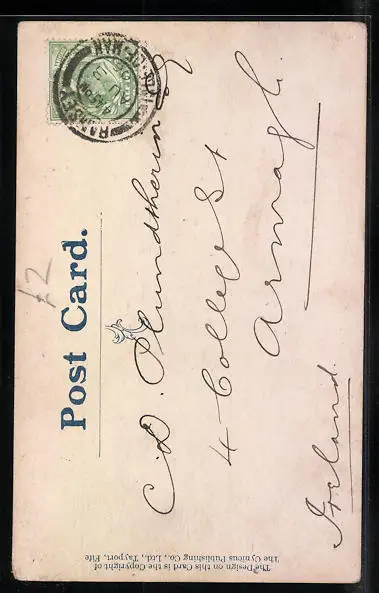 £2
Post Card.
C. D.
4 College St
Armagh.
Ireland.
The Design on this Card is the Copyright of
The Cynicus Publishing Co., Ltd., Tayport, Fife
RAMSEY
ISLE-OF-MAN